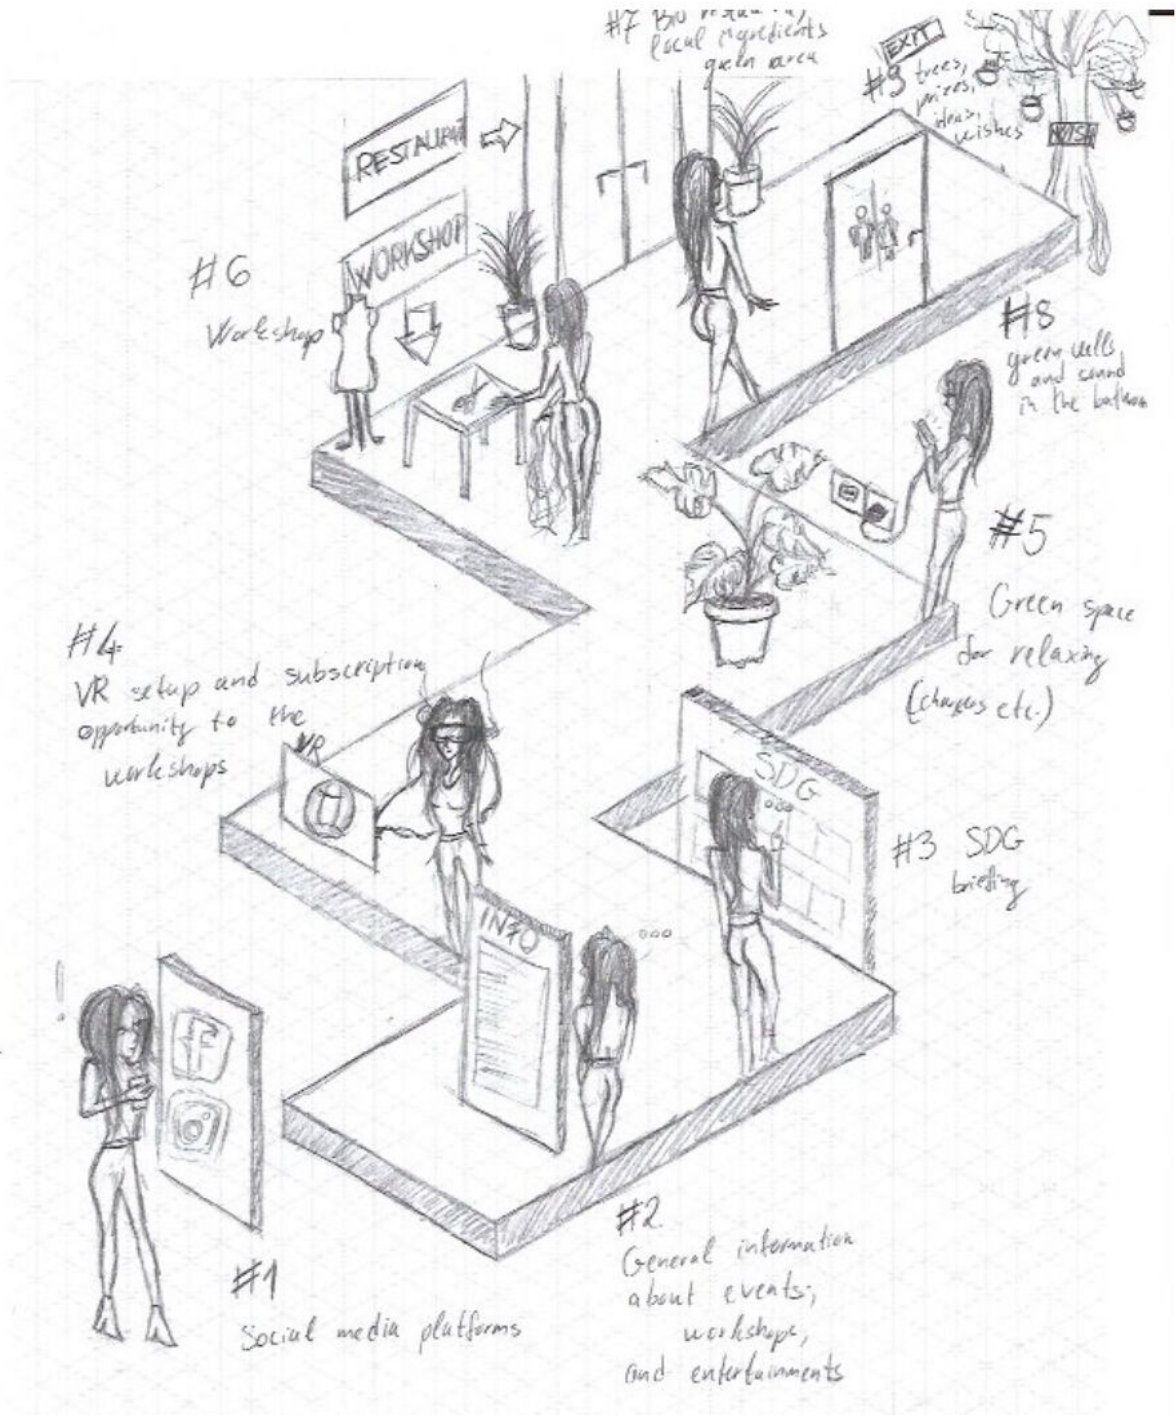 #7 Bio restaurant,
local ingredients
green area
EXIT
#9 trees,
prizes,
ideas,
wishes
WISH
RESTAURANT
WORKSHOP
#6
Workshop
#8
green walls
and sound
in the
#5
Green space
for relaxing
(chargers etc.)
#4
VR setup and subscription
opportunity to the
workshops
VR
SDG
#3 SDG
briefing
INFO
#1
Social media platforms
#2
General information
about events,
workshops,
and entertainments